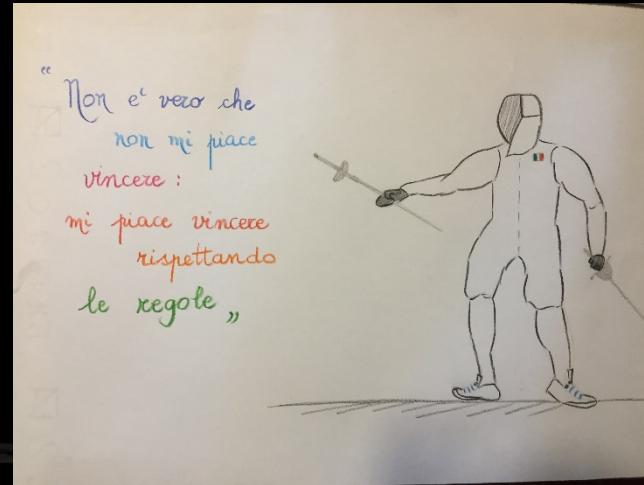 “ Non e' vero che
non mi piace
vincere :
mi piace vincere
rispettando
le regole „